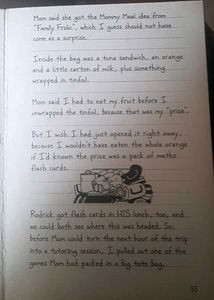 Mom said she got the Mommy Meal idea from
"Family Frolic", which I guess should not have
come as a surprise.
Inside the bag was a tuna sandwich, an orange
and a little carton of milk, plus something
wrapped in tinfoil.
Mom said I had to eat my fruit before I
unwrapped the tinfoil, because that was my "prize".
But I wish I had just opened it right away,
because I wouldn't have eaten the whole orange
if I'd known the prize was a pack of maths
flash cards.
Rodrick got flash cards in HIS lunch, too, and
we could both see where this was headed. So,
before Mom could turn the next hour of the trip
into a tutoring session, I pulled out one of the
games Mom had packed in a big tote bag.
35